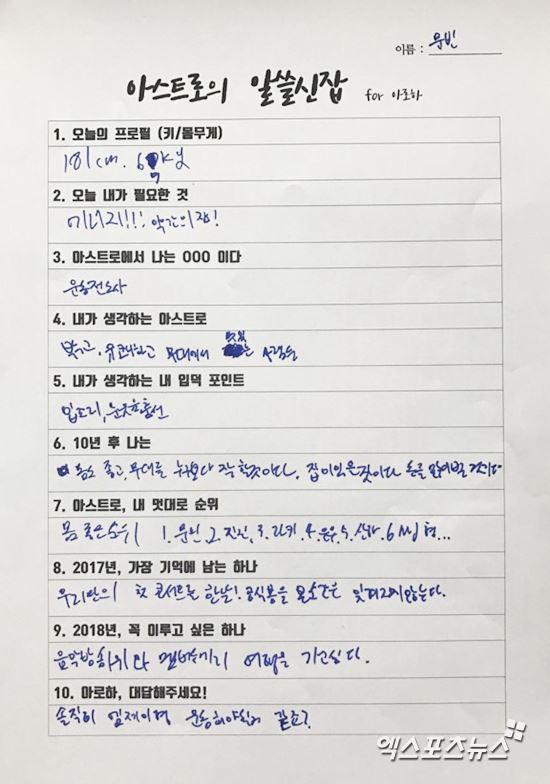 이름 : 문빈
아스트로의 알쓸신잡 for 아로하
1. 오늘의 프로필 (키/몸무게)
181cm. 69kg
2. 오늘 내가 필요한 것
에너지!!! 약간의 잠!
3. 아스트로에서 나는 OOO 이다
운동전도사
4. 내가 생각하는 아스트로
밝고, 유쾌하고 무대에서 멋있는 사람들
5. 내가 생각하는 내 입덕 포인트
입꼬리, 눈웃음
6. 10년 후 나는
몸도 좋고, 무대를 누구보다 잘 할것이다. 집이 있을것이다 돈을 많이 벌 것이다
7. 아스트로, 내 멋대로 순위
몸 좋은 순위 1. 문빈, 2. 진진, 3. 라키, 4. 은우, 5. 산하, 6 MJ 형...
8. 2017년, 가장 기억에 남는 하나
우리만의 첫 콘서트를 한날! 공식봉을 본 순간은 잊혀지지않는다.
9. 2018년, 꼭 이루고 싶은 하나
음악방송 1위와 멤버끼리 여행을 가고싶다.
10. 아로하, 대답해주세요!
솔직히 엠제이형 운동해야될거 같죠?
엑스포츠뉴스